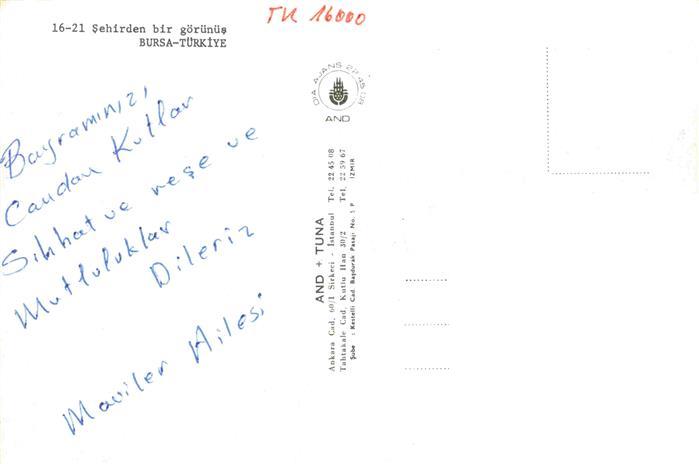 TR 16000
16-21 Şehirden bir görünüş
BURSA-TÜRKİYE
Bayramınızı,
Candan Kutlar
Sıhhat ve neşe ve
Mutluluklar
Dileriz
Maviler Ailesi
DIA AJANS 22 45 08
AND
AND + TUNA
Ankara Cad. 60/1 Sirkeci - İstanbul Tel. 22 45 08
Tahtakale Cad. Kutlu Han 30/2 Tel. 22 59 67
Şube : Kestelli Cad. Başdurak Pasajı No. 1 P İZMİR